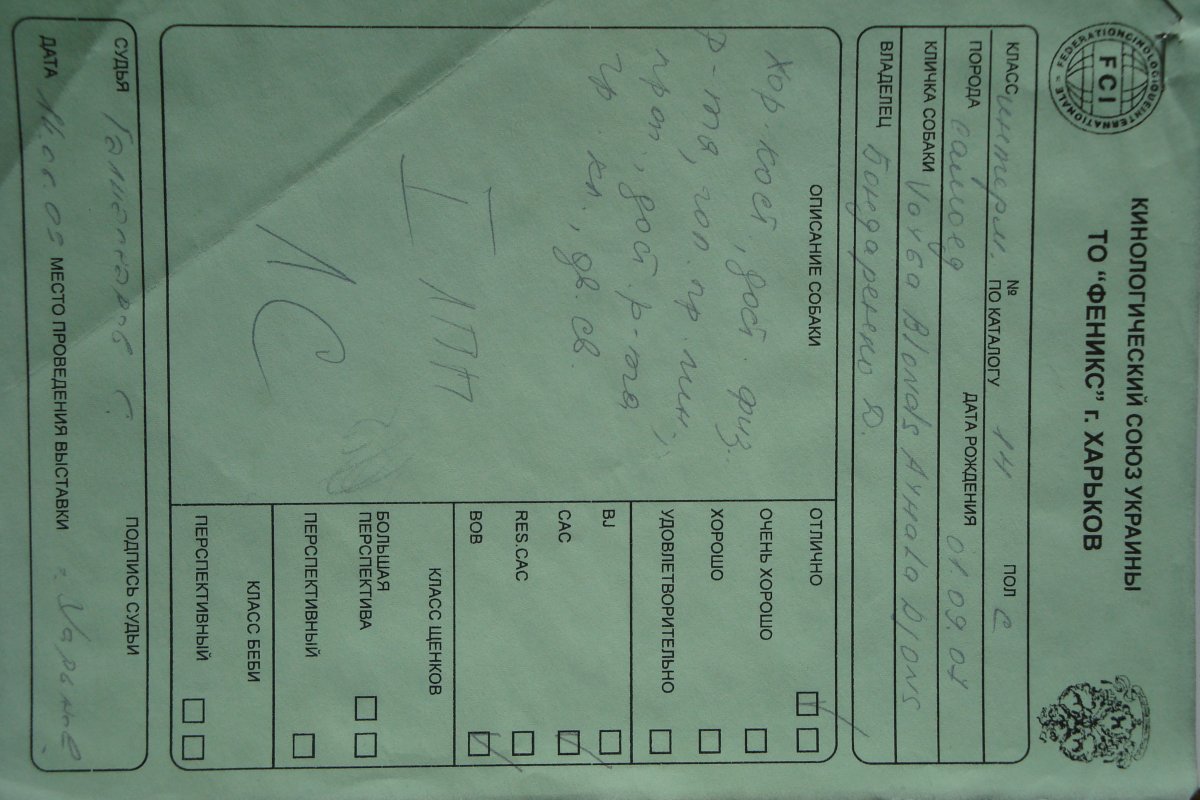 FEDERATION CINOLOGIQUE INTERNATIONALE
FCI
КИНОЛОГИЧЕСКИЙ СОЮЗ УКРАИНЫ
ТО “ФЕНИКС” г. ХАРЬКОВ
КЛАСС интерм. № ПО КАТАЛОГУ 14 ПОЛ С
ПОРОДА самоед ДАТА РОЖДЕНИЯ 01 09.07
КЛИЧКА СОБАКИ Blonds
ВЛАДЕЛЕЦ Бондаренко Д.
ОПИСАНИЕ СОБАКИ
Хор. кост, дост. физ.
р-тя, гол. пр. лин.,
проп, дост. р-та
гр. кл., дв. св.
I ЛПП
ЛС
ОТЛИЧНО
ОЧЕНЬ ХОРОШО
ХОРОШО
УДОВЛЕТВОРИТЕЛЬНО
BJ
CAC
RES.CAC
BOB
КЛАСС ЩЕНКОВ
БОЛЬШАЯ
ПЕРСПЕКТИВА
ПЕРСПЕКТИВНЫЙ
КЛАСС БЕБИ
ПЕРСПЕКТИВНЫЙ
СУДЬЯ С ПОДПИСЬ СУДЬИ
ДАТА МЕСТО ПРОВЕДЕНИЯ ВЫСТАВКИ г. Харьков